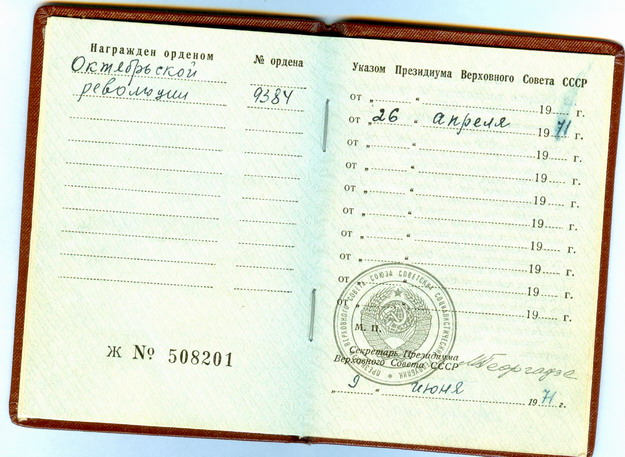 Награжден орденом
№ ордена
Октябрьской
революции
9384
Ж № 508201
Указом Президиума Верховного Совета СССР
от „ “ 19 г.
от „ 26 “ апреля 19 71 г.
от „ “ 19 г.
от „ “ 19 г.
от „ “ 19 г.
от „ “ 19 г.
от „ “ 19 г.
от „ “ 19 г.
от „ “ 19 г.
от „ “ 19 г.
М. П.
Секретарь Президиума
Верховного Совета СССР
МГеоргадзе
„ 9 “ июня 19 71 г.